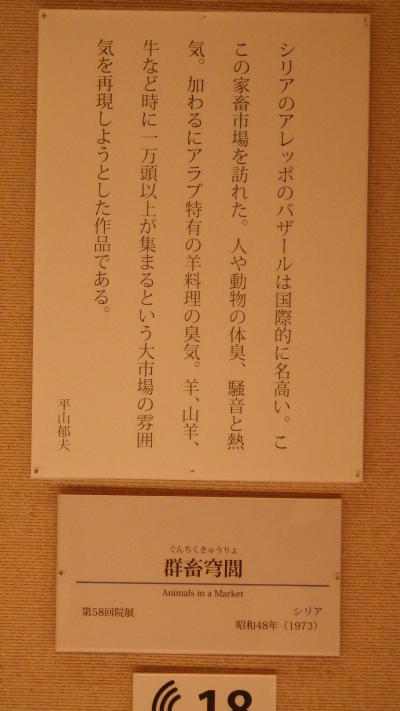 シリアのアレッポのバザールは国際的に名高い。こ
この家畜市場を訪れた。人や動物の体臭、騒音と熱
気。加わるにアラブ特有の羊料理の臭気。羊、山羊、
牛など時に一万頭以上が集まるという大市場の雰囲
気を再現しようとした作品である。
平山郁夫
ぐんちくきゅうりょ
群畜穹閭
Animals in a Market
第58回院展
シリア
昭和48年(1973)
18